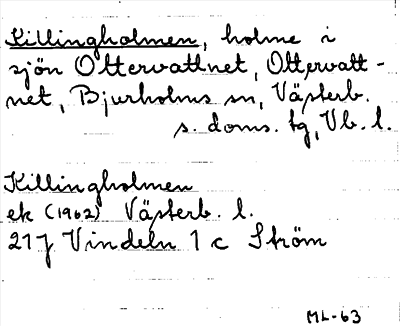 Killingholmen, holme i
sjön Ottervattnet, Ottervatt-
net, Bjurholms sn, Västerb.
s. doms. tg, Vb. l.
Killingholmen
ek (1962) Västerb. l.
21J Vindeln 1 c Ström
ML-63